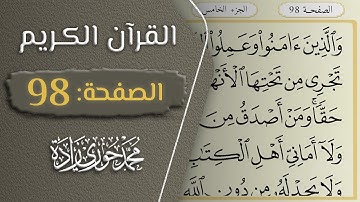 القرآن الكريم
الصفحة: 98
محمد حوري زاده
الصفحة 98
الجزء الخامس
وَٱلَّذِينَ ءَامَنُوا۟ وَعَمِلُوا۟ ٱل
تَجْرِى مِن تَحْتِهَا ٱلْأَنْهَ
حَقًّا ۚ وَمَنْ أَصْدَقُ مِنَ
وَلَآ أَمَانِىِّ أَهْلِ ٱلْكِتَٰبِ
وَلَا يَجِدْ لَهُۥ مِن دُونِ ٱللَّهِ